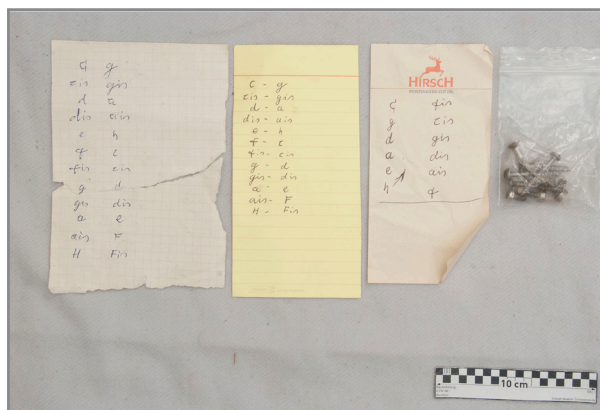 C g
cis gis
d a
dis ais
e h
f c
fis cis
g d
gis dis
a e
ais F
H Fis
C - g
cis - gis
d - a
dis - ais
e - h
f - c
fis - cis
g - d
gis - dis
a - e
ais - F
H - Fis
HIRSCH
C fis
g cis
d gis
a dis
e ais
h f
10 cm